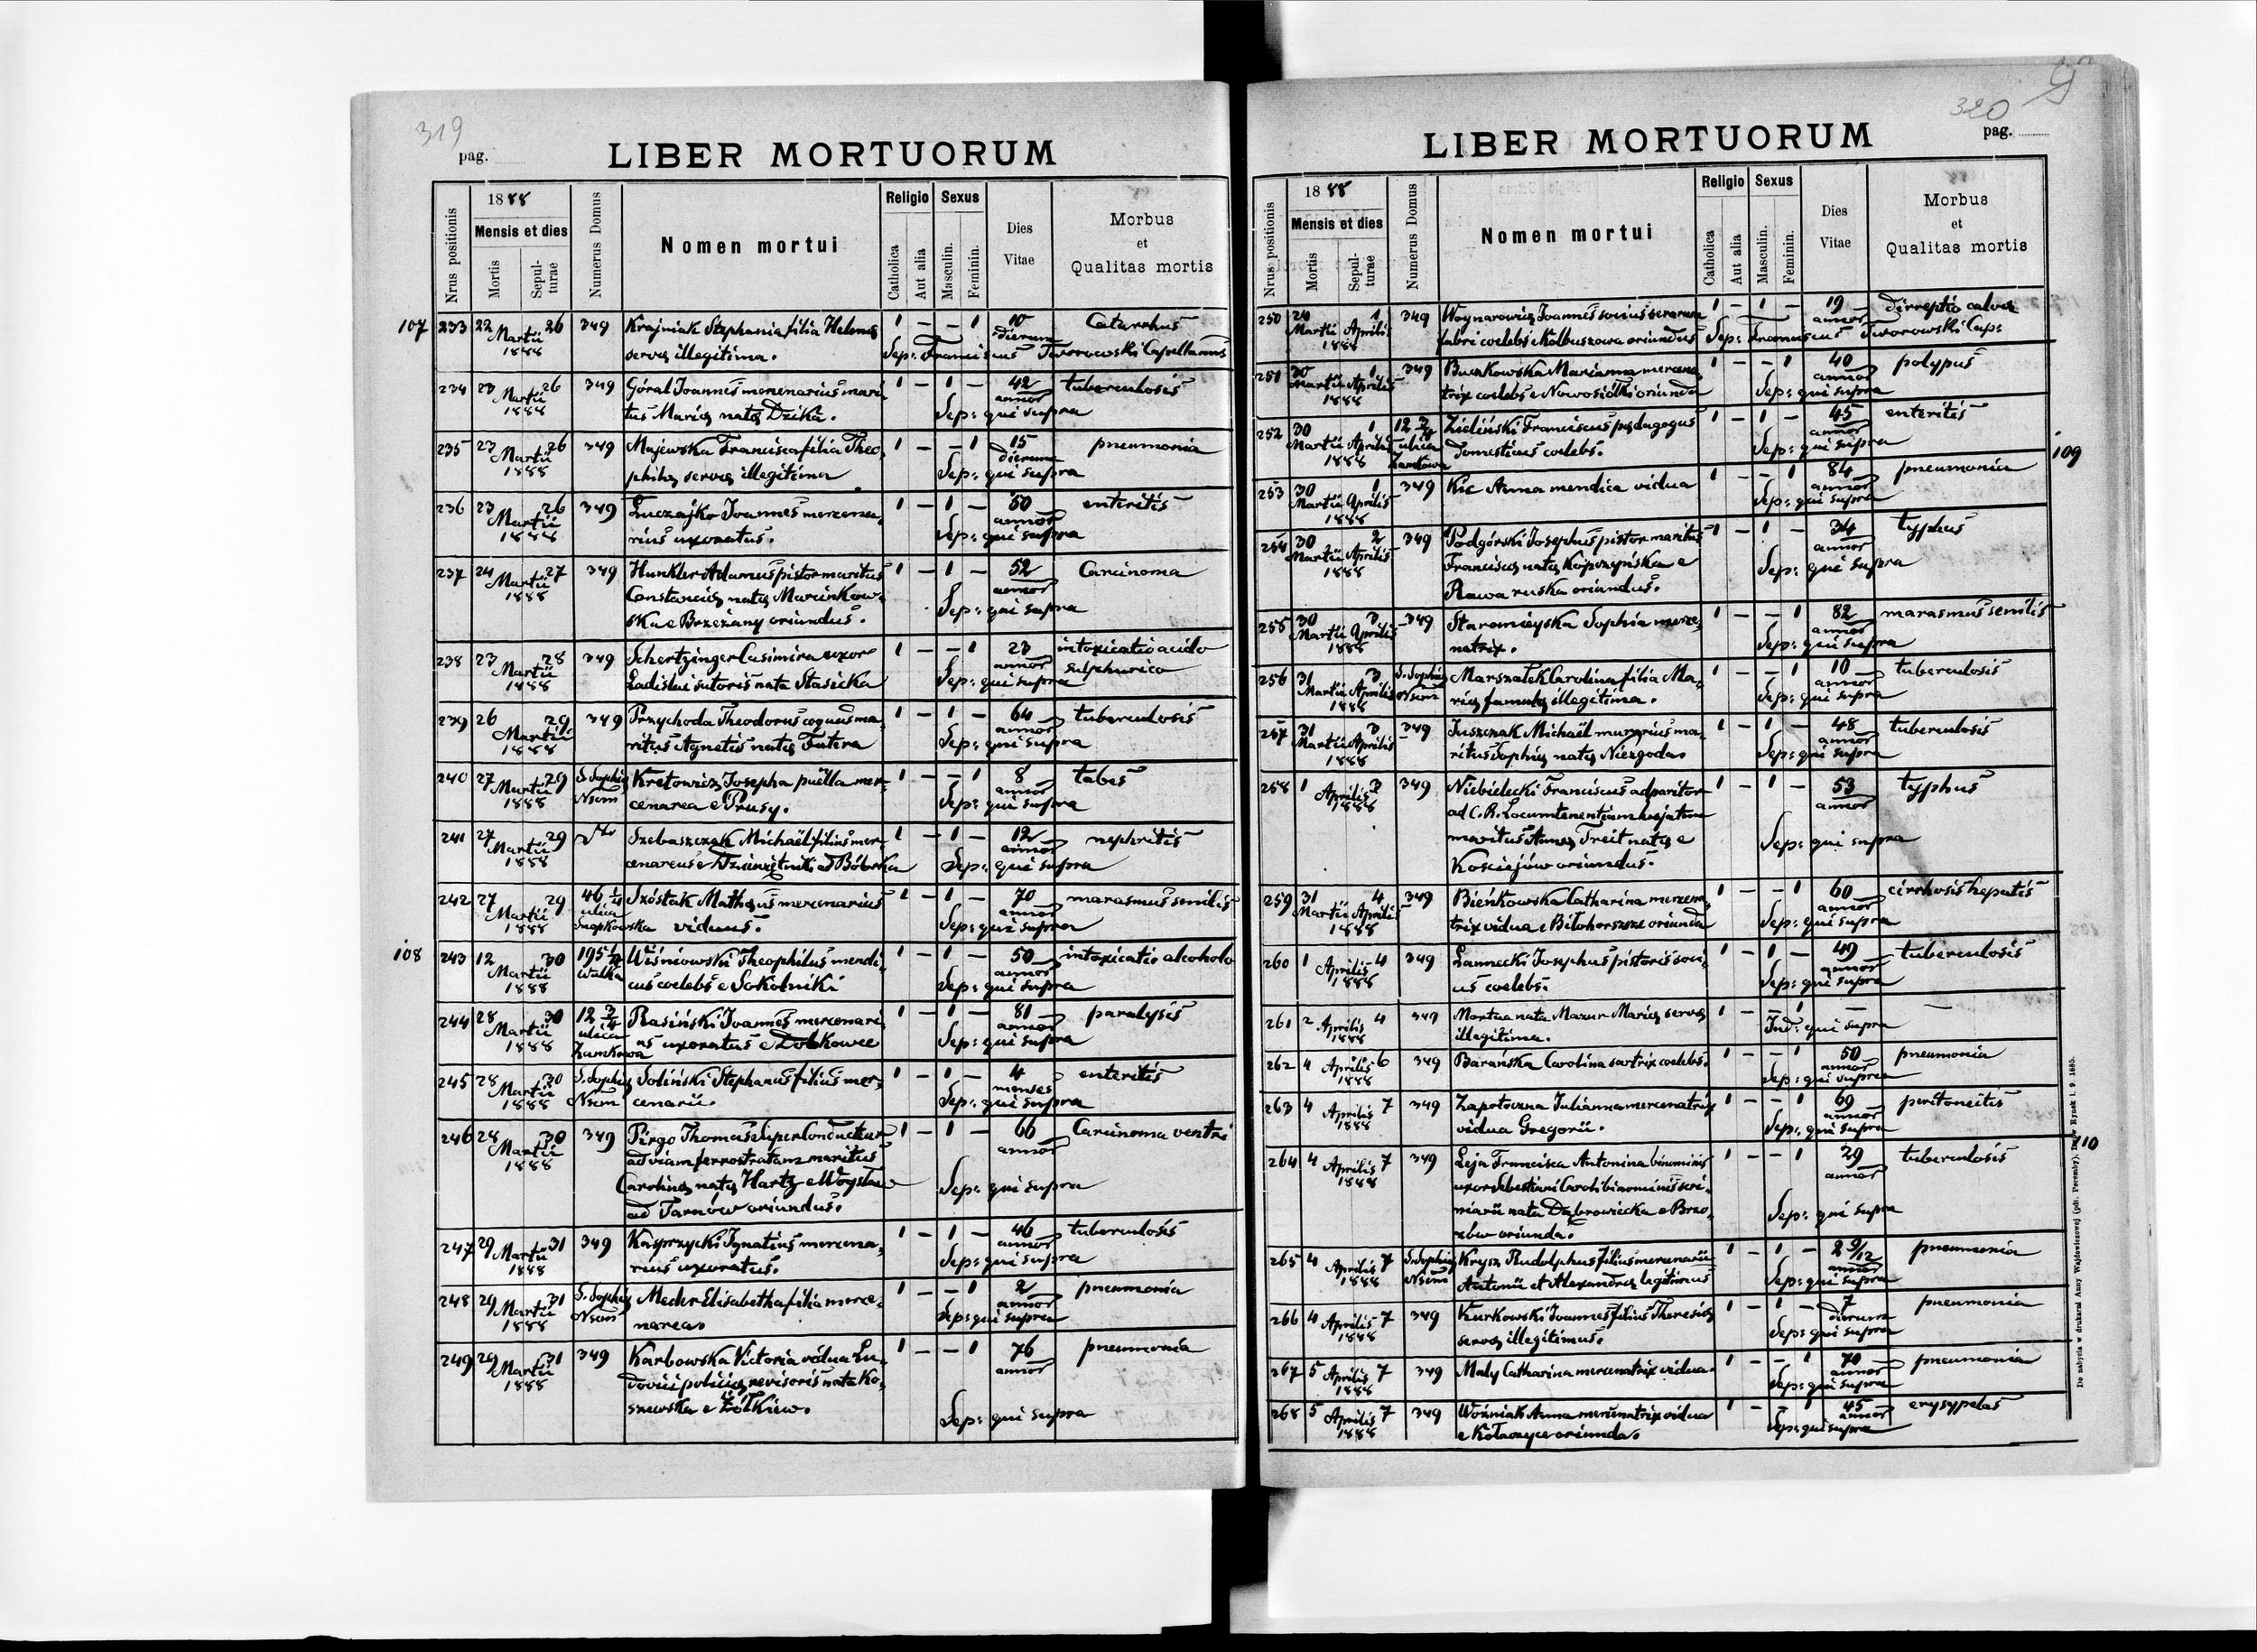 319
pag.
LIBER MORTUORUM
Nrus positionis
1888
Mensis et dies
Mortis
Sepulturae
Numerus Domus
Nomen mortui
Religio
Catholica
Aut alia
Sexus
Masculin.
Feminin.
Dies Vitae
Morbus et Qualitas mortis
107 233 22 26 349 Krajniak Stephania filia Helenę 1 – – 1 10 Catarrhus
Martii 1888 servę illegitima. dierum Sep: Franciscus Tworowski Capellanus
234 23 26 349 Góral Joannes mercenarius mari 1 – 1 – 42 tuberculosis
Martii 1888 tus Marię natę Dzika. annor Sep: qui supra
235 23 26 349 Majewska Francisca filia Theo, 1 – – 1 15 pneumonia
Martii 1888 philę servę illegitima dierum Sep: qui supra
236 23 26 349 Łuczajko Joannes mercena, 1 – 1 – 50 enteritis
Martii 1888 rius uxoratus. annor Sep: qui supra
237 24 27 349 Hunkler Adamus pistor maritus 1 – 1 – 52 Carcinoma
Martii 1888 Constancię natę Marcinkow, annor
ska e Brzeżany oriundus. Sep: qui supra
238 23 28 349 Schertzinger Casimira uxor 1 – – 1 23 intoxicatio acido
Martii 1888 Ladislai sutoris nata Stasicka annor sulphurico Sep: qui supra
239 26 29 349 Przychoda Theodorus coquus ma, 1 – 1 – 64 tuberculosis
Martii 1888 ritus Agnetis natę Futera annor Sep: qui supra
240 27 29 S. Sophię Nsom Kretowicz Josepha puella mer, 1 – – 1 8 tabes
Martii 1888 cenarea e Prusy. annor Sep: qui supra
241 27 29 Szebaszczak Michaël filius mer, 1 – 1 – 12 nephritis
Martii 1888 cenareus e ad Bóbrka annor Sep: qui supra
242 27 29 46 ulica Szóstak Mathęus mercenarius 1 – 1 – 70 marasmus senilis
Martii 1888 viduus. annor Sep: qui supra
108 243 12 30 195 Wulka Wiśniowski Theophilus mendi, 1 – 1 – 50 intoxicatio alcoholo
Martii 1888 cus coelebs e Sokolniki annor Sep: qui supra
244 28 30 12 3/4 ulica Zamkowa Rasiński Joannes mercenari 1 – 1 – 81 paralysis
Martii 1888 us uxoratus e annor Sep: qui supra
245 28 30 S. Sophię Nsom Soliński Stephanus filius mer, 1 – 1 – 4 enteritis
Martii 1888 cenarii. menses Sep: qui supra
246 28 30 349 Pirgo Thomas Superconducteur 1 – 1 – 66 Carcinoma ventri
Martii 1888 ad viam ferrostratam maritus annor
Carolinę natę Hartz e
ad Tarnów oriundus. Sep: qui supra
247 29 31 349 Kasprzycki Ignatius mercena, 1 – 1 – 46 tuberculosis
Martii 1888 rius uxoratus. annor Sep: qui supra
248 29 31 S. Sophię Nsom Meder Elisabetha filia merce, 1 – – 1 2 pneumonia
Martii 1888 narea. annor Sep: qui supra
249 29 31 349 Karbowska Victoria vidua Lu, 1 – – 1 76 pneumonia
Martii 1888 dovici policię revisoris nata Ko, annor
szewska e Żółkiew. Sep: qui supra
320
pag.
LIBER MORTUORUM
Nrus positionis
1888
Mensis et dies
Mortis
Sepulturae
Numerus Domus
Nomen mortui
Religio
Catholica
Aut alia
Sexus
Masculin.
Feminin.
Dies Vitae
Morbus et Qualitas mortis
250 1 349 Woynarowicz Joannes socius serarum 1 – 1 – 19 calva
Martii Aprilis 1888 fabri coelebs e Kolbuszowa oriundus annor Sep: Franciscus Tworowski Cap:
251 30 1 349 Buczkowska Marianna mercena, 1 – – 1 40 polypus
Martii Aprilis 1888 trix coelebs e Nowosiółki oriunda annor Sep: qui supra
252 30 1 12 3/4 ulica Zamkowa Zieliński Franciscus pędagogus 1 – 1 – 45 enteritis
Martii Aprilis 1888 domesticus coelebs. annor Sep: qui supra
109
253 30 1 349 Kic Anna mendica vidua 1 – – 1 84 pneumonia
Martii Aprilis 1888 annor Sep: qui supra
254 30 2 349 Podgórski Josephus pistor maritus 1 – 1 – 34 typhus
Martii Aprilis 1888 Franciscę natę Kopczyńska e annor
Rawa ruska oriundus. Sep: qui supra
255 30 3 349 Staromieyska Sophia merce, 1 – – 1 82 marasmus senilis
Martii Aprilis 1888 natrix. annor Sep: qui supra
256 31 3 S. Sophię Nsom Marszałek Carolina filia Ma, 1 – – 1 10 tuberculosis
Martii Aprilis 1888 rię famulę illegitima. annor Sep: qui supra
257 31 3 349 Juszczak Michaël murarius ma, 1 – 1 – 48 tuberculosis
Martii Aprilis 1888 ritus Sophię natę Niezgoda. annor Sep: qui supra
258 1 3 349 Niebielecki Franciscus adparitor 1 – 1 – 53 typhus
Aprilis 1888 ad C. R. Locumtenentiam hujatem annor
maritus Annę Freit natę e
Kosciejów oriundus. Sep: qui supra
259 31 4 349 Bieńkowska Catharina mercena, 1 – – 1 60 cirrhosis hepatis
Martii Aprilis 1888 trix vidua e Biłohorszcze oriunda annor Sep: qui supra
260 1 4 349 Łannecki Josephus pistoris soci, 1 – 1 – 49 tuberculosis
Aprilis 1888 us coelebs. annor Sep: qui supra
261 2 4 349 Mortua nata Mazur Marię servę 1 – – 1 – –
Aprilis 1888 illegitima. Ind: qui supra
262 4 6 349 Barańska Carolina sartrix coelebs. 1 – – 1 50 pneumonia
Aprilis 1888 annor Sep: qui supra
263 4 7 349 Zapotoczna Julianna mercenatrix 1 – – 1 69 peritoneitis
Aprilis 1888 vidua Gregorii. annor Sep: qui supra
110
264 4 7 349 Leja Francisca Antonina binominis 1 – – 1 29 tuberculosis
Aprilis 1888 uxor Sebastiani Caroli binominis scri, annor
niarii nata Dąbrowiecka e Brzo,
zów oriunda. Sep: qui supra
265 4 7 S. Sophię Nsom Krysz Rudolphus filius mercenarii 1 – 1 – 2 9/12 pneumonia
Aprilis 1888 Antonii et Alexandrę legitimus annor Sep: qui supra
266 4 7 349 Kurkowski Joannes filius Theresię 1 – 1 – 7 pneumonia
Aprilis 1888 servę illegitimus. dierum Sep: qui supra
267 5 7 349 Mały Catharina mercenatrix vidua. 1 – – 1 70 pneumonia
Aprilis 1888 annor Sep: qui supra
268 5 7 349 Woźniak Anna mercenatrix vidua 1 – – 1 45 erysypelas
Aprilis 1888 e Kołaczyce oriunda. annor Sep: qui supra
Do nabycia w drukarni Anny Wajdowiczowej (pds. Poremby), Rynek l. 9. 1885.